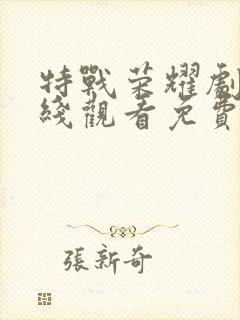 特戰荣耀劇
綫觀看免費
張新奇